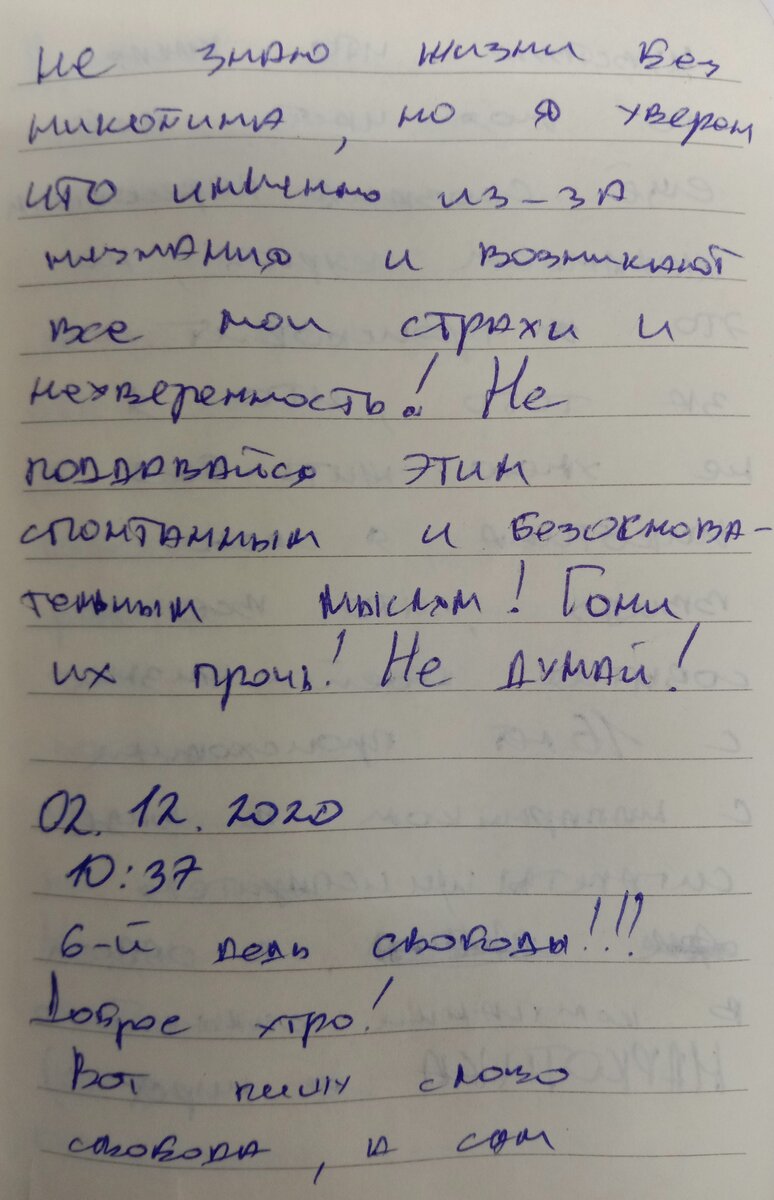 не знаю жизни без
никотина, но я уверен
что именно из-за
незнания и возникают
все мои страхи и
неуверенность! Не
поддавайся этим
спонтанным и безоснова-
тельным мыслям! Гони
их прочь! Не думай!
02.12.2020
10:37
6-й день свободы!!!
Доброе утро!
Вот пишу слово
свобода, а сам